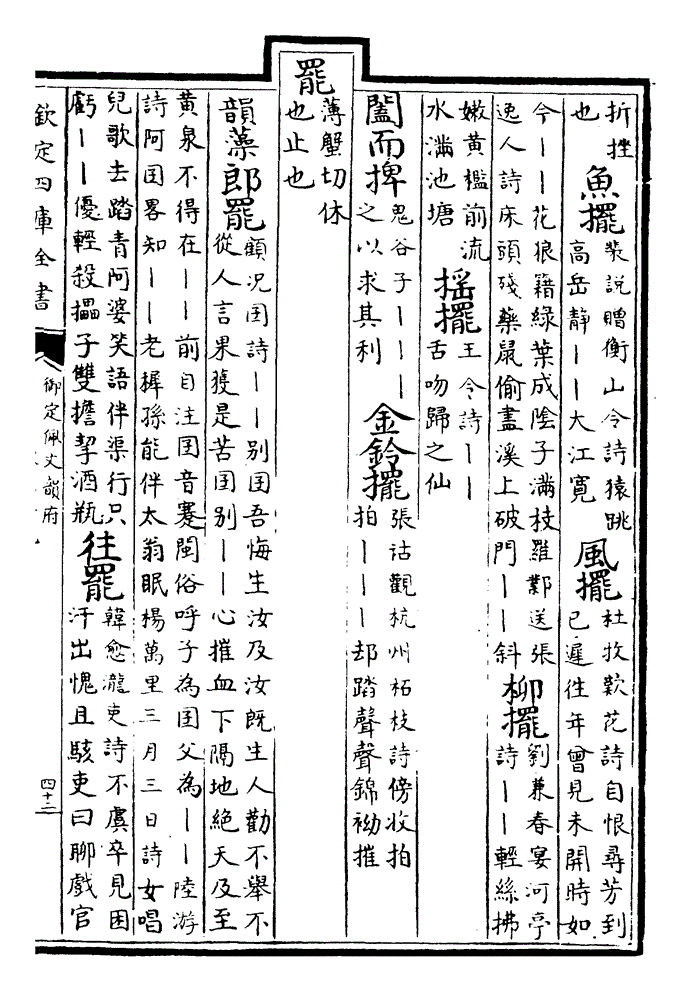 折挫也 魚擺 裴説贈衡山令詩猿跳高岳静丨丨大江寛 風擺 杜牧歎花詩自恨尋芳到已遲徃年曾見未開時如
今丨丨花狼籍緑葉成陰子滿枝羅鄴送張逸人詩床頭殘藥鼠偷盡溪上破門丨丨斜 柳擺 劉兼春宴河亭詩丨丨輕絲拂
嫩黄檻前流水滿池塘 揺擺 王令詩丨丨舌吻歸之仙
闔而捭 鬼谷子丨丨丨之以求其利 金鈴擺 張祜觀杭州柘枝詩傍收拍拍丨丨丨却踏聲聲錦袎摧
罷 薄蟹切休也止也
韻藻郎罷 顧况囝詩丨丨别囝吾悔生汝及汝既生人勸不舉不從人言果獲是苦囝别丨丨心摧血下隔地絶天及至
黄泉不得在丨丨前自注囝音蹇閩俗呼子為囝父為丨丨陸游詩阿囝畧知丨丨老稺孫能伴太翁眠楊萬里三月三日詩女唱
兒歌去踏青阿婆笑語伴渠行只虧丨丨優輕殺櫑子雙擔挈酒瓶 徃罷 韓愈瀧吏詩不虞卒見困汗出愧且駭吏曰聊戲官
欽定四庫全書
御定佩文韻府
四十二